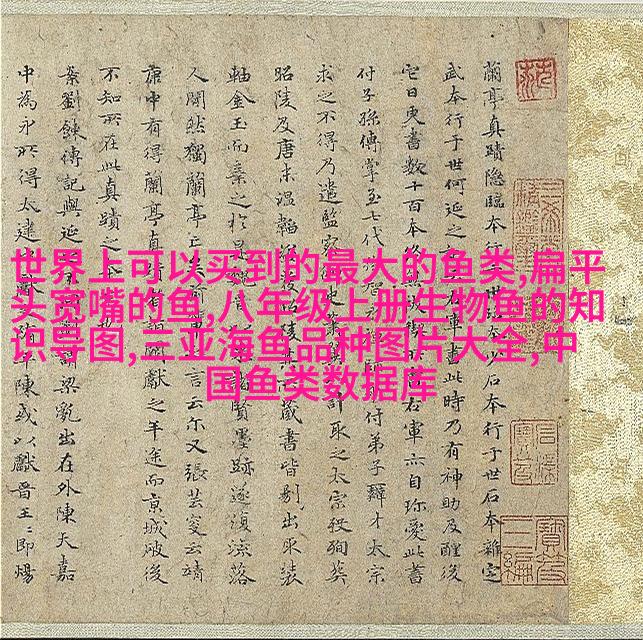 世界上可以买到的最大的鱼类,扁平
头宽嘴的鱼,八年级上册生物鱼的知
识导图,三亚海鱼品种图片大全,中
国鱼类数据库
蘭亭真蹟隐臨本行于世石本行于世石本雜定
武本行于世何延之右軍書此時乃有神助及醒後
它日更書數十百本右軍亦自珍愛此書
付子孫傳掌至七代付弟子辯才太宗
求之不得乃遣監察計取之太宗殁殉葬
昭陵及唐末温韜藏書皆剔出取裝
軸金玉而棄之於是賢墨跡遂復流落
人間然獨蘭亭亡矣前言云尔又張芸叟云靖
康中有得蘭亭真獻之半途而京城破後
不知所在此真蹟之
案劉餗傳記梁亂出在外陳天嘉
中為永所得太建陳或以獻晋王〻即煬